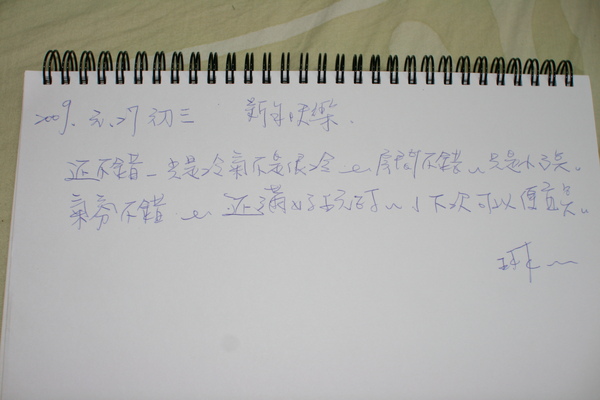 2009. 元.27 初三 新年快樂.
还不錯~只是冷氣不是很冷~房間不錯~只是小了點。
氣氛不錯~还滿好玩的~下次可以便宜點。